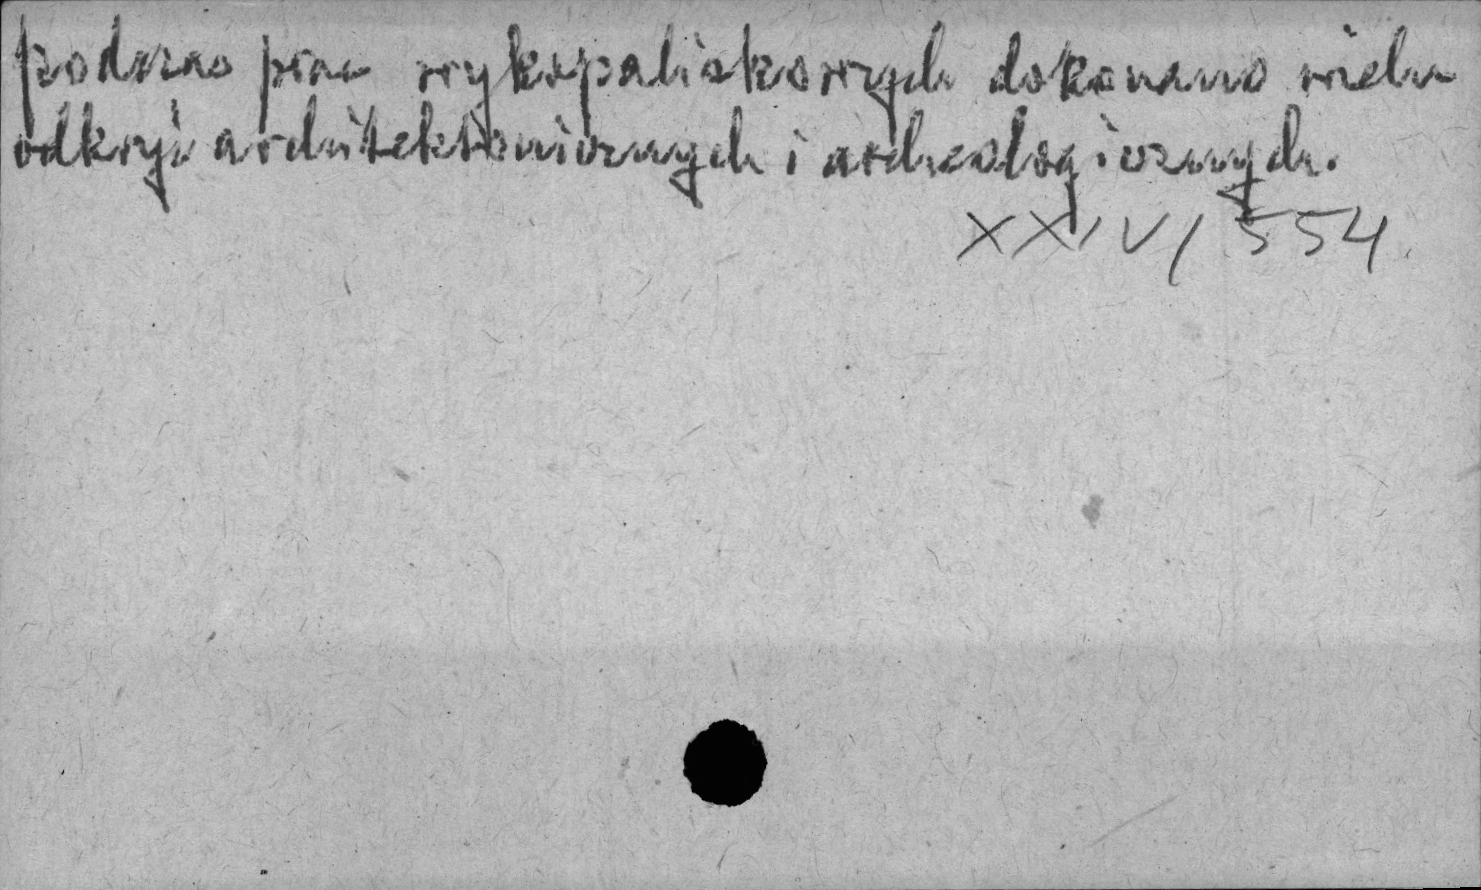 podczas prac wykopaliskowych dokonano wielu
odkryć architektonicznych i archeologicznych.
XXIV/554